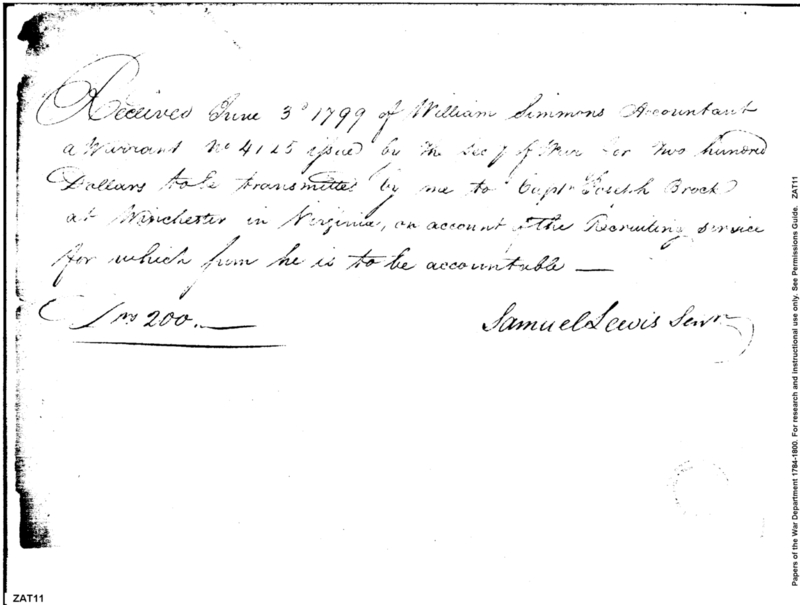 Received June 3d 1799 of William Simmons Accountant
a Warrant No 4125 issued by the Secy of War for two hundred
Dollars to be transmitted by me to Capt Joseph Brock
at Winchester in Virginia, on account of the Recruiting service
for which sum he is to be accountable —
Drs 200.—
Samuel Lewis Senr
Papers of the War Department 1784-1800. For research and instructional use only. See Permissions Guide. ZAT11
ZAT11